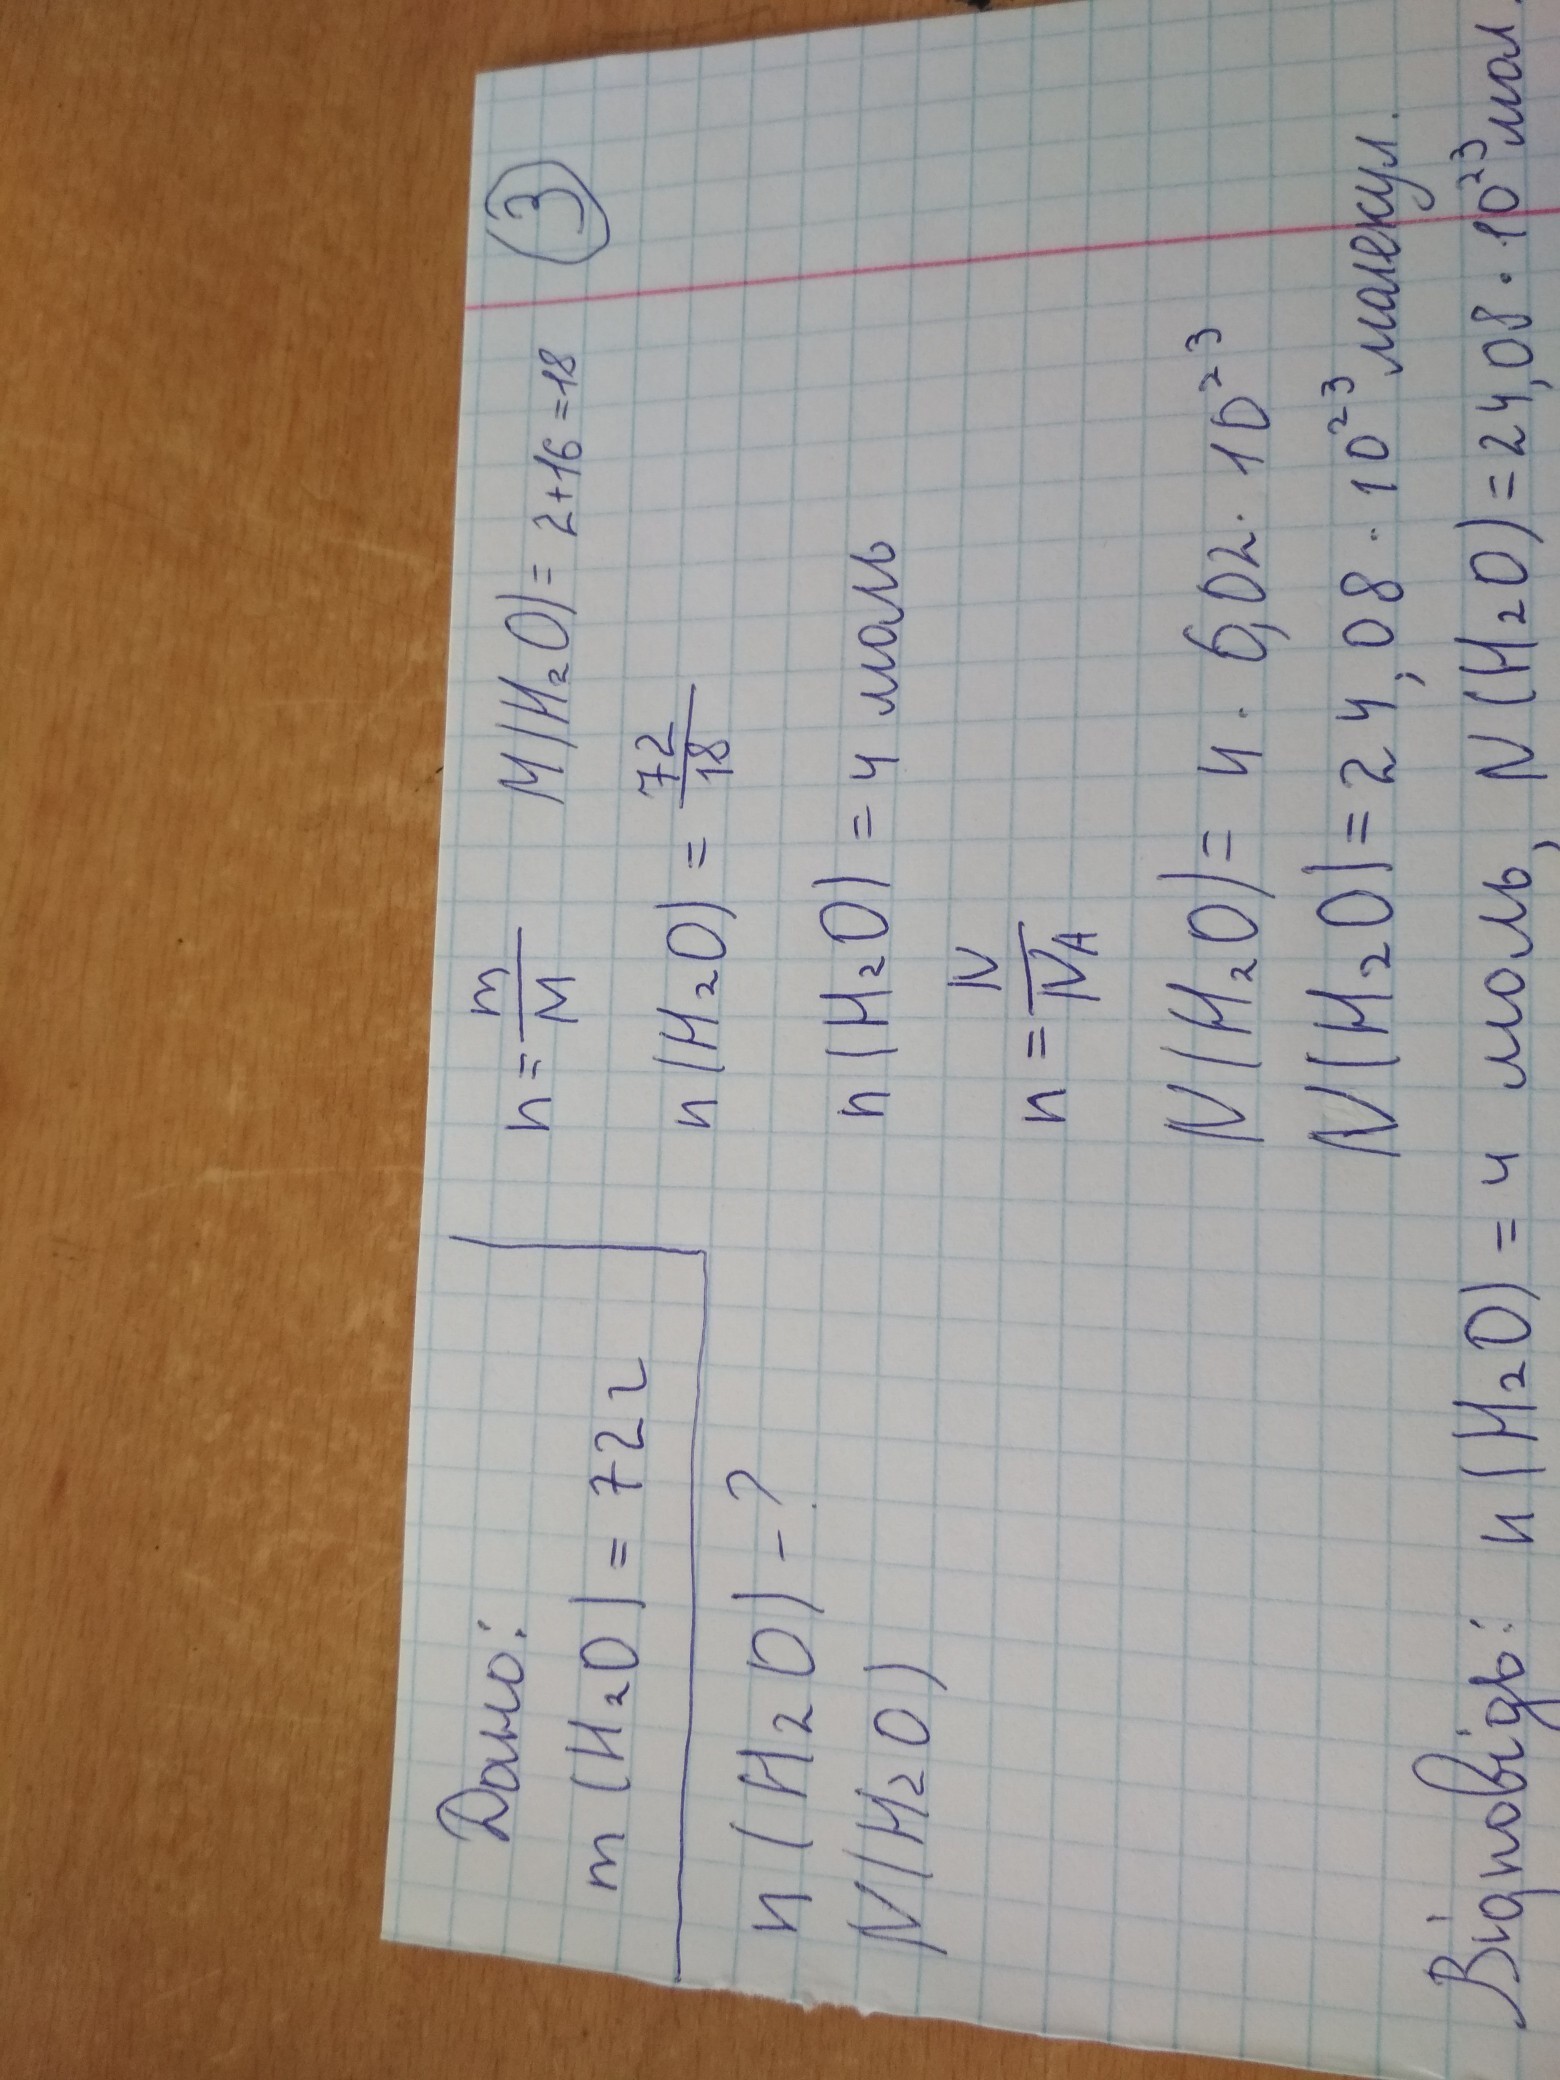 ③
Дано:
m (H₂O) = 72 г
n (H₂O) - ?
N (H₂O)
n = m/M M(H₂O) = 2+16 = 18
n (H₂O) = 72/18
n (H₂O) = 4 моль
n = N/Nᴀ
N (H₂O) = 4 · 6,02 · 10²³
N (H₂O) = 24,08 · 10²³ малекул.
Відповідь: n (H₂O) = 4 моль, N (H₂O) = 24,08 · 10²³ мол.